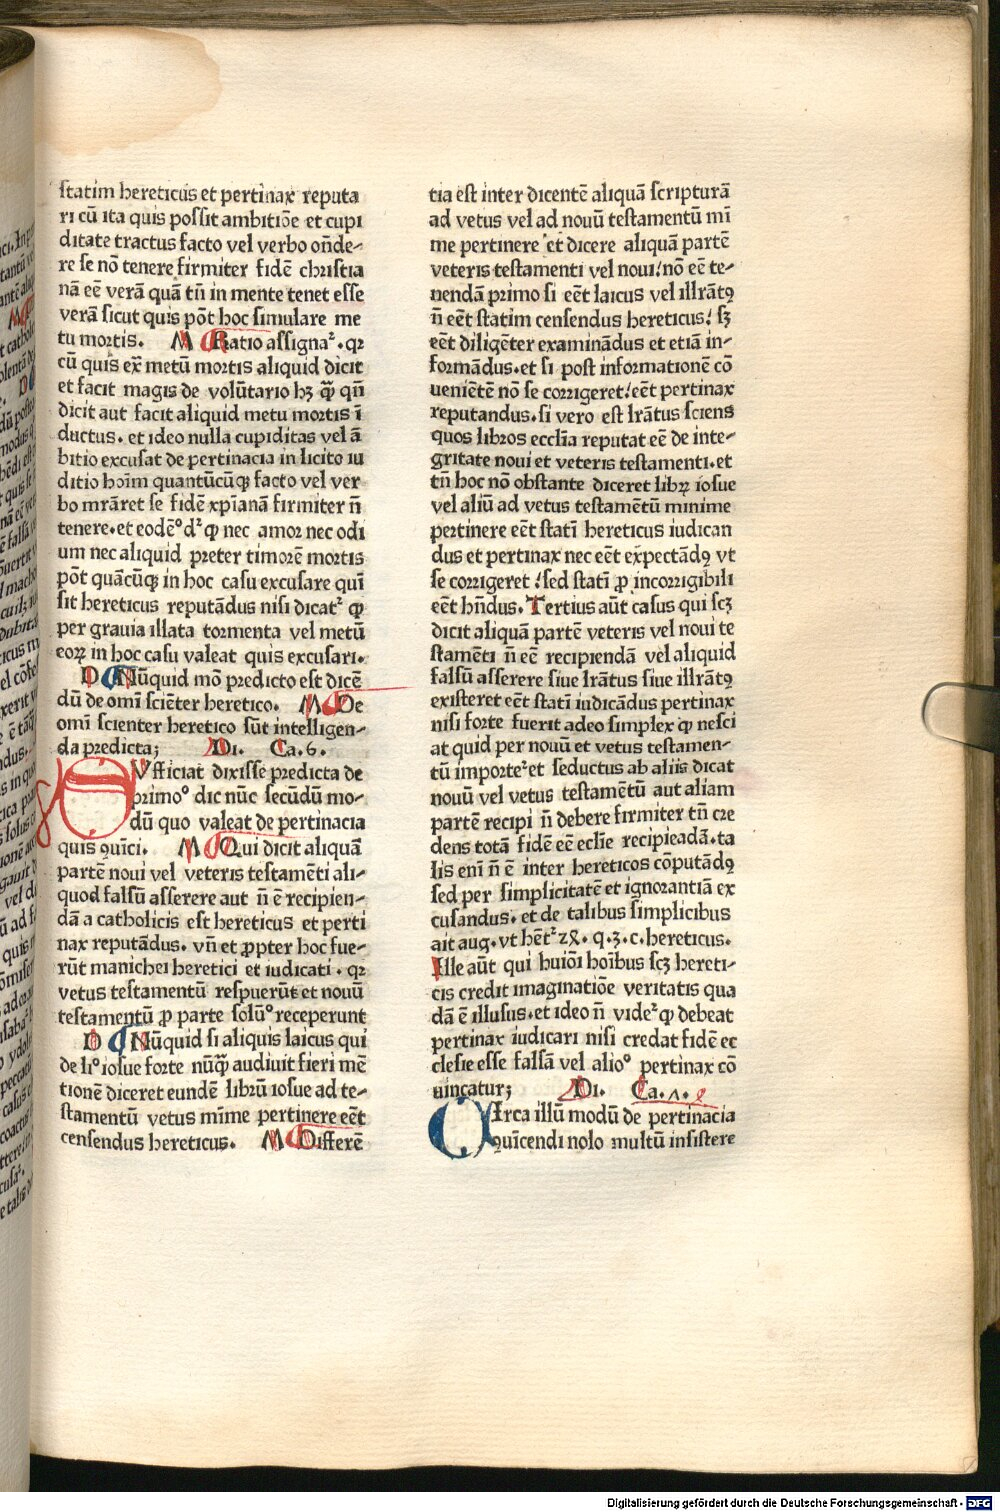 statim hereticus et pertinax reputa
ri cū ita quis possit ambitiōe et cupi
ditate tractus facto vel verbo on̄de-
re se nō tenere firmiter fidē christia
nā eē verā quā tn̄ in mente tenet esse
verā sicut quis pōt hoc simulare me
tu mortis. M Ratio assignaᷣ. qꝛ
cū quis ex̄ metū mortis aliquid dicit
et facit magis de volūtario hꝫ qᷓꝫ qn̄
dicit aut facit aliquid metu mortis ī
ductus. et ideo nulla cupiditas vel ā
bitio excusat de pertinacia in licito iu
ditio hoīm quantūcūqꝫ facto vel ver
bo mrāret se fidē xp̄ianā firmiter n̄
tenere. et eodē° dꝛ ꝙ nec amor nec odi
um nec aliquid preter timorē mortis
pōt quācūqꝫ in hoc casu excusare quī
sit hereticus reputādus nisi dicatᷣ ꝙ
per grauia illata tormenta vel metū
eoꝝ in hoc casu valeat quis excusari.
D Nūquid mō predicto est dicē
dū de omī sciēter heretico. M De
omī scienter heretico sūt intelligen-
da predicta; Di. Ca. 6.
SVfficiat dixisse predicta de
primo° dic nūc secūdū mo-
dū quo valeat de pertinacia
quis ꝯuīci. M Qui dicit aliquā
partē noui vel veteris testamēti ali-
quod falsū asserere aut n̄ ē recipien-
dā a catholicis est hereticus et perti
nax reputādus. vn̄ et ꝓpter hoc fue-
rūt manichei heretici et iudicati. qꝛ
vetus testamentū respuerūt et nouū
testamentū ꝓ parte solū° receperunt
D Nūquid si aliquis laicus qui
de li° iosue forte nūqᷓꝫ audiuit fieri mē
tionē diceret eundē librū iosue ad te-
stamentū vetus mīme pertinere eēt
censendus hereticus. M Differē
tia est inter dicentē aliquā scripturā
ad vetus vel ad nouū testamentū mī
me pertinere et dicere aliquā partē
veteris testamenti vel noui: nō eē te-
nendā primo si eēt laicus vel illrātꝰ
n̄ eēt statim censendus hereticus: sꝫ
eēt diligēter examinādus et etiā in-
formādus. et si post informationē cō
ueniētē nō se corrigeret: eēt pertinax
reputandus. si vero est lrātus sciens
quos libros eccl̄ia reputat eē de inte-
gritate noui et veteris testamenti. et
tn̄ hoc nō obstante diceret libꝝ iosue
vel aliū ad vetus testamētū minime
pertinere eēt statī hereticus iudican
dus et pertinax nec eēt expectādꝰ vt
se corrigeret: sed statī ꝓ incorrigibili
eēt hn̄dus. Tertius aūt casus qui scꝫ
dicit aliquā partē veteris vel noui te
stamēti n̄ eē recipiendā vel aliquid
falsū asserere siue lrātus siue illrātꝰ
existeret eēt statī iudicādus pertinax
nisi forte fuerit adeo simplex ꝙ nesci
at quid per nouū et vetus testamen-
tū importeᷣ et seductus ab aliis dicat
nouū vel vetus testamētū aut aliam
partē recipi n̄ debere firmiter tn̄ cre
dens totā fidē eē eclīe recipieadā. ta
lis enī n̄ ē inter hereticos cōputādꝰ
sed per simplicitatē et ignorantiā ex
cusandus. et de talibus simplicibus
ait aug. vt hētᷣ 2ꝝ. q. 3. c. hereticus.
Ille aūt qui huiōī hoībus scꝫ hereti-
cis credit imaginatiōe veritatis qua
dā ē illusus. et ideo n̄ videᷣ ꝙ debeat
pertinax iudicari nisi credat fidē ec
clesie esse falsā vel alio° pertinax cō
uincatur; Di. Ca. 7.
CIrca illū modū de pertinacia
ꝯuīcendi nolo multū insistere
Digitalisierung gefördert durch die Deutsche Forschungsgemeinschaft - DFG